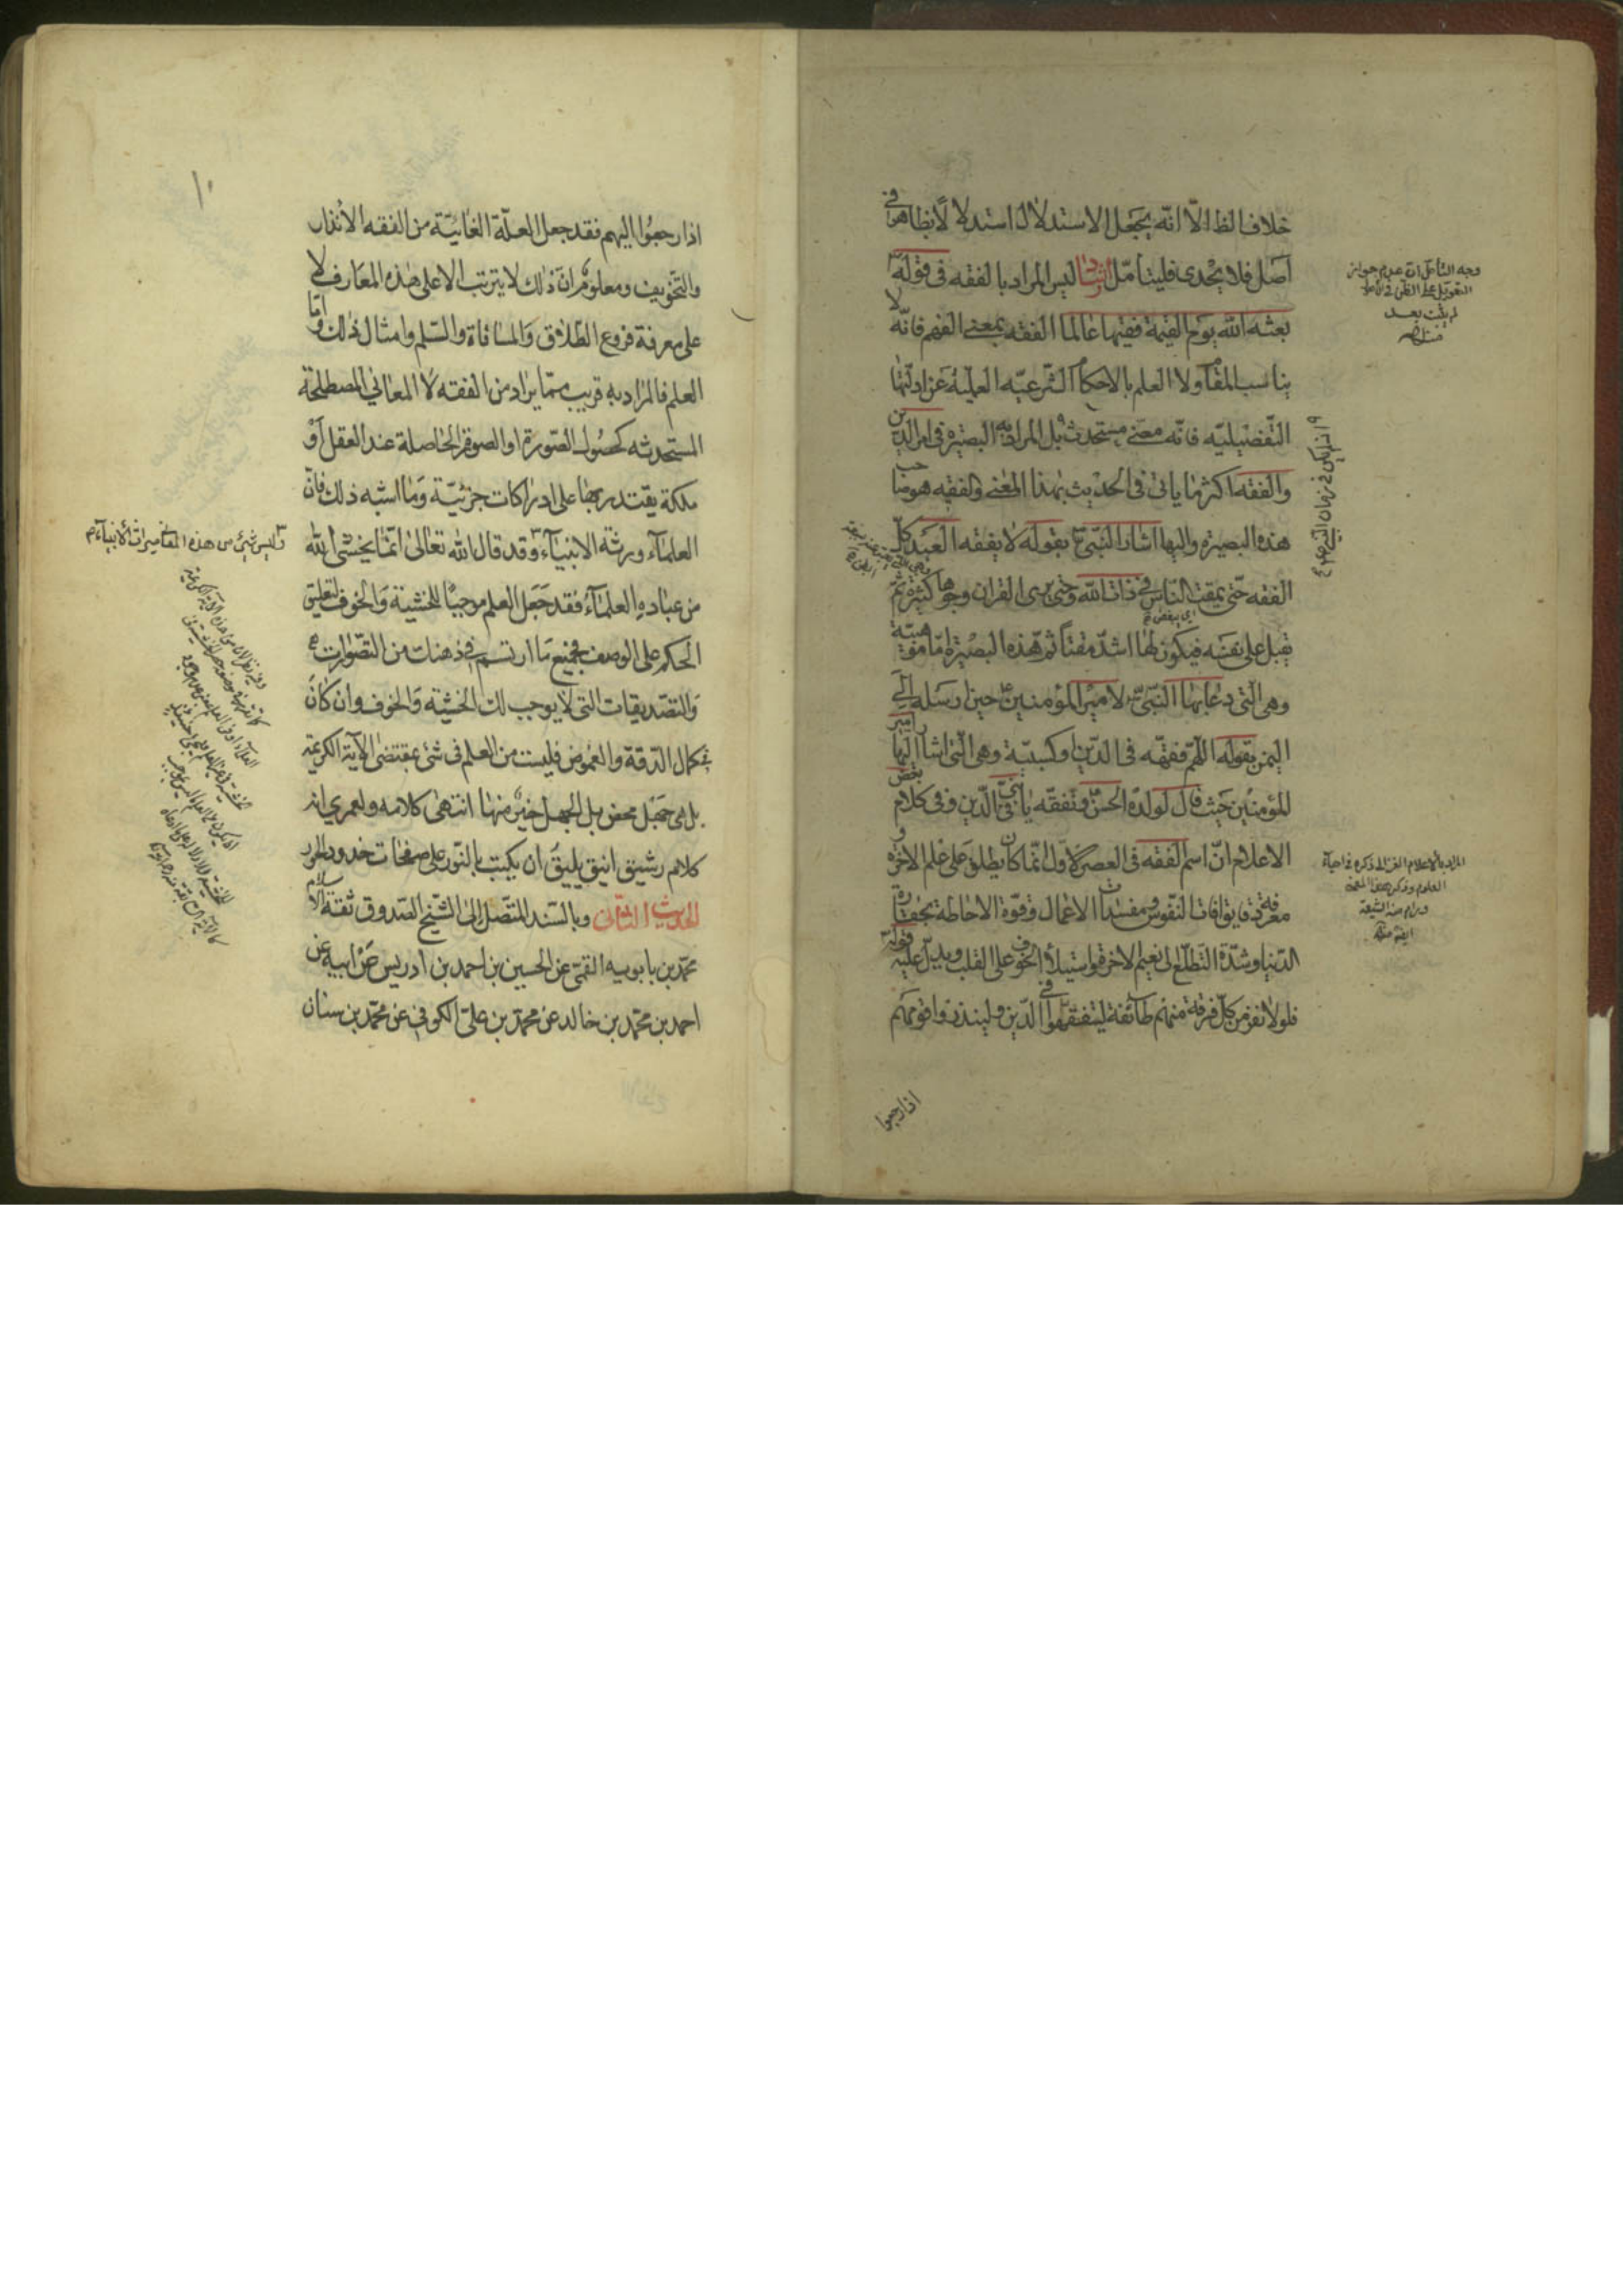 خلاف الظ الا انه يجعل الاستدلال استدلالا بظاهر في
اصل فلا يجدى فليتأمل ارشاد ليس المراد بالفقه فى قوله
بعثه الله يوم القيمة فقيها عالما الفقه بمعنى الفهم فانه لا
يناسب المقام ولا العلم بالاحكام الشرعيه العملية عن ادلتها
التفصيليه فانه معنى مستحدث بل المراد به البصيرة فى امر الدين
والفقه اكثر ما ياتى فى الحديث بهذا المعنى والفقيه هو صاحب
هذه البصيرة واليها اشار النبى ص بقوله لا يفقه العبد كل
الفقه حتى يمقت الناس فى ذات الله وحتى يرى للقران وجوها كثيرة ثم
يقبل على نفسه فيكون لها اشد مقتا ثم هذه البصيرة اما موهبية
وهى التى دعا بها النبى ص لامير المؤمنين ع حين ارسله الى
اليمن بقوله اللهم فقهه فى الدين او كسبية وهى التى اشار اليها امير
المؤمنين حيث قال لولده الحسن ع وتفقه يا بنى فى الدين وفى كلام بعض
الاعلام ان اسم الفقه فى العصر الاول انما كان يطلق على علم الاخرة و
معرفة دقايق افات النفوس ومفسدات الاعمال وقوة الاحاطة بحقارة
الدنيا وشدة التطلع الى نعيم الاخرة واستيلاء الخوف على القلب ويدل عليه قوله تع
فلولا نفر من كل فرقة منهم طائفة ليتفقهوا فى الدين ولينذروا قومهم
اذا رجعوا
وجه التأمل ان عدم جواز
التعويل على الظن فى الاصول
لم يثبت بعد
اى لم يكن فى زمان النبى ص
اى يبغض
المراد بالاعلام الغزالى ذكره فى احياء
العلوم
١٠
اذا رجعوا اليهم فقد جعل العلة الغائية من الفقه الانذار
والتخويف ومعلوم ان ذلك لا يترتب الا على هذه المعارف لا
على معرفة فروع الطلاق والمساقاة والسلم وامثال ذلك واما
العلم فالمراد به قريب مما يراد من الفقه لا المعانى المصطلحة
المستحدثه كحصول الصورة او الصورة الحاصلة عند العقل او
ملكة يقتدر بها على ادراكات جزئية وما اشبه ذلك فان
العلماء ورثة الانبياء وقد قال الله تعالى انما يخشى الله
من عباده العلماء فقد جعل العلم موجبا للخشية والخوف لتعليق
الحكم على الوصف فجميع ما ارتسم فى ذهنك من التصورات
والتصديقات التى لا يوجب لك الخشية والخوف وان كان
فى كمال الدقة والغموض فليست من العلم فى شئ بمقتضى الاية الكريمة
بل هى جهل محض بل الجهل خير منها انتهى كلامه ولعمرى انه
كلام رشيق انيق يليق ان يكتب بالنور على صفحات خدود الحور
الحديث الثانى وبالسند المتصل الى الشيخ الصدوق ثقة الاسلام
محمد بن بابويه القمى عن الحسين بن احمد بن ادريس عن ابيه عن
احمد بن محمد بن خالد عن محمد بن على الكوفى عن محمد بن سنان
وليس شئ من هذه المعانى ميراث الانبياء